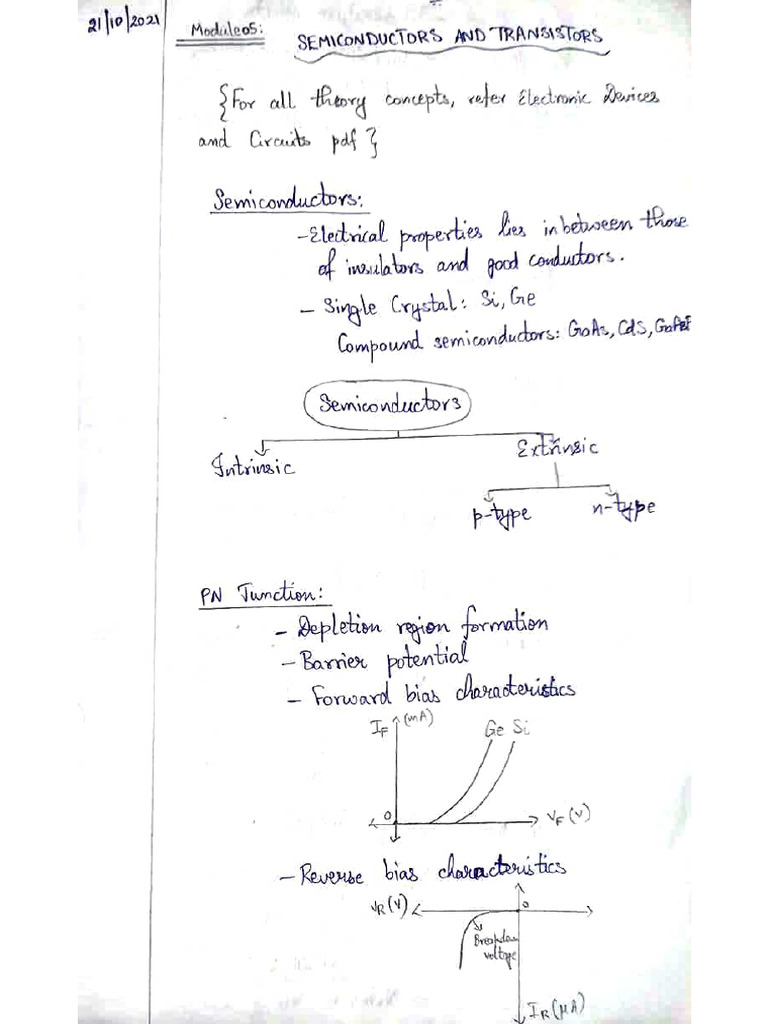 21/10/2021
Module 05:
SEMICONDUCTORS AND TRANSISTORS
{For all theory concepts, refer Electronic Devices
and Circuits pdf}
Semiconductors:
- Electrical properties lies in between those
of insulators and good conductors.
- Single Crystal: Si, Ge
Compound semiconductors: GaAs, CdS,
Semiconductors
Intrinsic
Extrinsic
p-type
n-type
PN Junction:
- Depletion region formation
- Barrier potential
- Forward bias characteristics
IF (mA)
Ge Si
0
VF (V)
- Reverse bias characteristics
VR (V)
0
Breakdown
voltage
IR (μA)